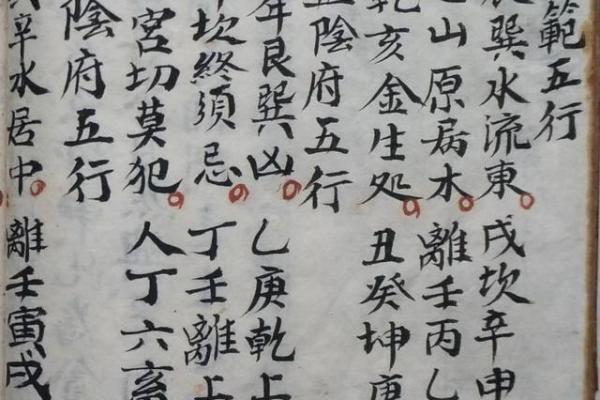 範五行
辰巽水流東 戌坎辛申
山原病木 離壬丙乙
乾亥金生处 丑癸坤庚
陰府五行
年艮巽凶 乙庚乾上
坎終須忌 丁壬離上
宮切莫犯 人丁六畜
陰府五行
辛水居中 離壬寅戌